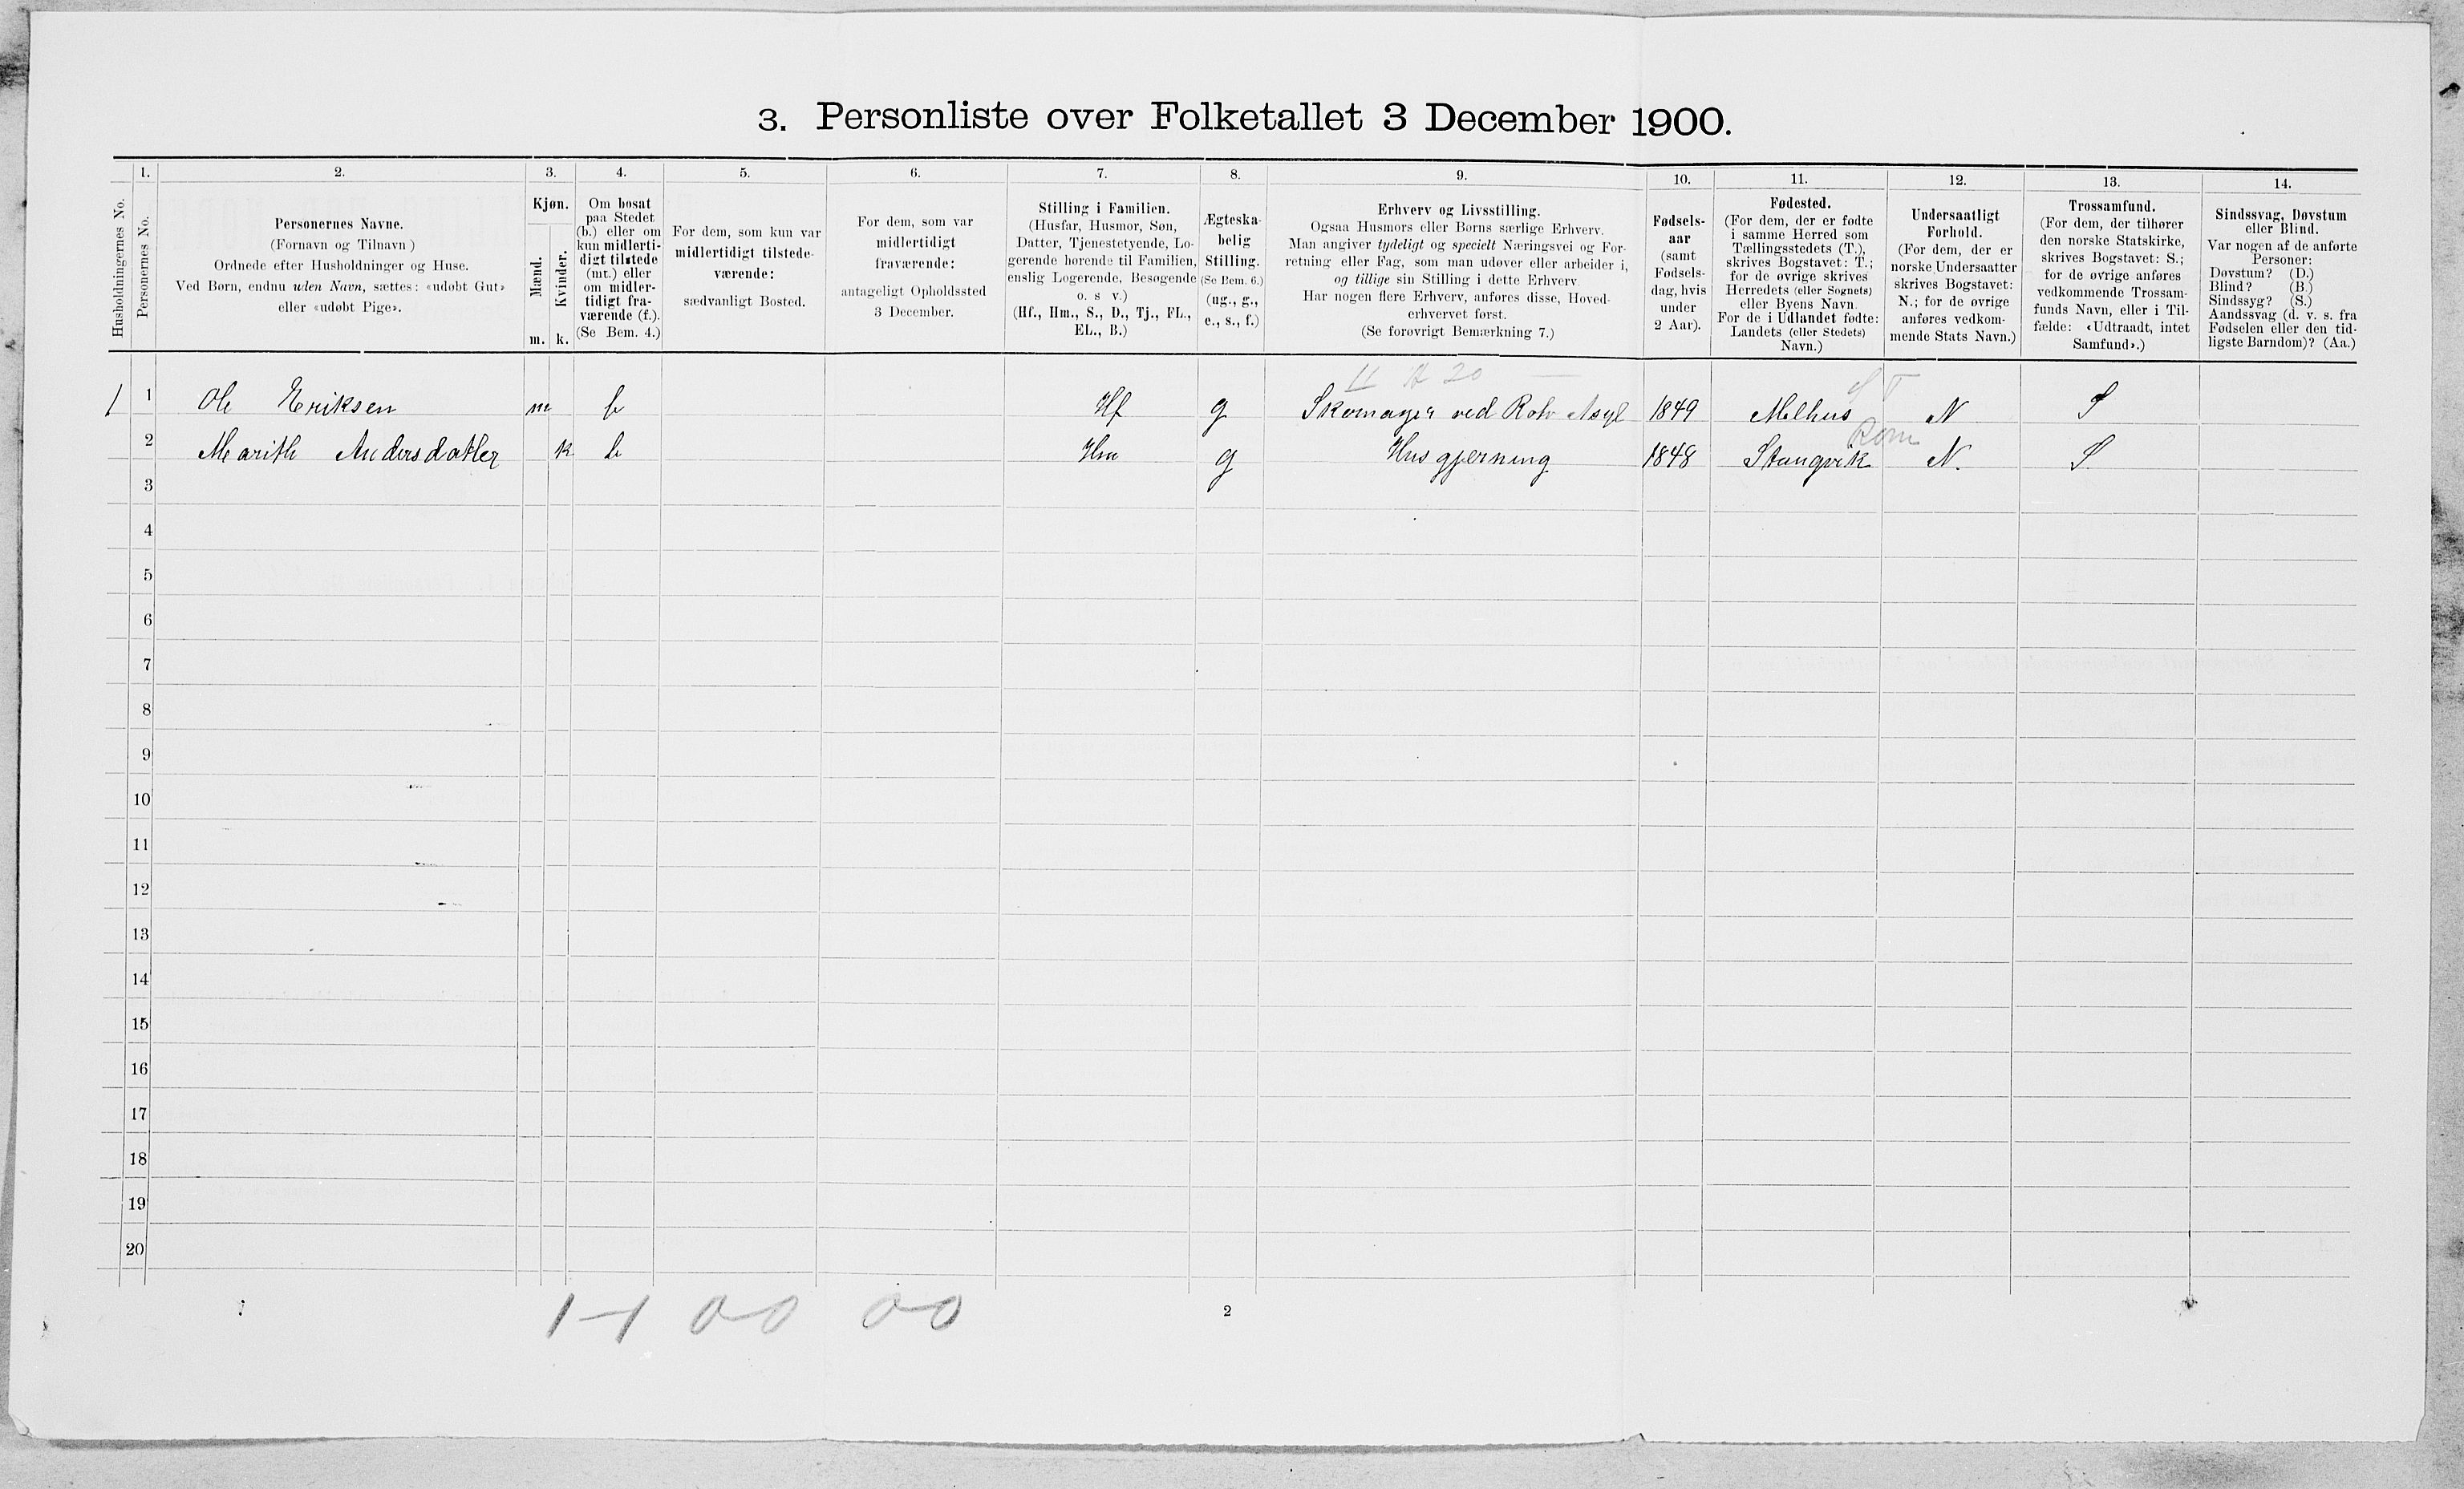 3. Personliste over Folketallet 3 December 1900.
1. 2. 3. 4. 5. 6. 7. 8. 9. 10. 11. 12. 13. 14.
Husholdningernes No.
Personernes No.
Personernes Navne.
(Fornavn og Tilnavn)
Ordnede efter Husholdninger og Huse.
Ved Børn, endnu uden Navn, sættes: «udøbt Gut»
eller «udøbt Pige».
Kjøn.
Mænd.
Kvinder.
m. k.
Om bosat
paa Stedet
(b.) eller om
kun midlerti-
digt tilstede
(mt.) eller
om midler-
tidigt fra-
værende (f.).
(Se Bem. 4.)
For dem, som kun var
midlertidigt tilstede-
værende:
sædvanligt Bosted.
For dem, som var
midlertidigt
fraværende:
antageligt Opholdssted
3 December.
Stilling i Familien.
(Husfar, Husmor, Søn,
Datter, Tjenestetyende, Lo-
gerende hørende til Familien,
enslig Logerende, Besøgende
o. s v.)
(Hf., Hm., S., D., Tj., FL.,
EL., B.)
Ægteska-
belig
Stilling.
(Se Bem. 6.)
(ug., g.,
e., s., f.)
Erhverv og Livsstilling.
Ogsaa Husmors eller Børns særlige Erhverv.
Man angiver tydeligt og specielt Næringsvei og For-
retning eller Fag, som man udøver eller arbeider i,
og tillige sin Stilling i dette Erhverv.
Har nogen flere Erhverv, anføres disse, Hoved-
erhvervet først.
(Se forøvrigt Bemærkning 7.)
Fødsels-
aar
(samt
Fødsels-
dag, hvis
under
2 Aar).
Fødested.
(For dem, der er fødte
i samme Herred som
Tællingsstedets (T.),
skrives Bogstavet: T.;
for de øvrige skrives
Herredets (eller Sognets)
eller Byens Navn.
For de i Udlandet fødte:
Landets (eller Stedets)
Navn.)
Undersaatligt
Forhold.
(For dem, der er
norske Undersaatter
skrives Bogstavet:
N.; for de øvrige
anføres vedkom-
mende Stats Navn.)
Trossamfund.
(For dem, der tilhører
den norske Statskirke,
skrives Bogstavet: S.;
for de øvrige anføres
vedkommende Trossam-
funds Navn, eller i Til-
fælde: «Udtraadt, intet
Samfund».)
Sindssvag, Døvstum
eller Blind.
Var nogen af de anførte
Personer:
Døvstum? (D.)
Blind? (B.)
Sindssyg? (S.)
Aandssvag (d. v. s. fra
Fødselen eller den tid-
ligste Barndom)? (Aa.)
20 ST
1 1 Ole Eriksen m b Hf g Skomager ved Asyl 1849 Melhus N S
Rom
2 Marith Andersdatter k b Hm g Husgjerning 1848 Stangvik N. S
3
4
5
6
7
8
9
10
11
12
13
14
15
16
17
18
19
20
1-1 0-0 0-0
2